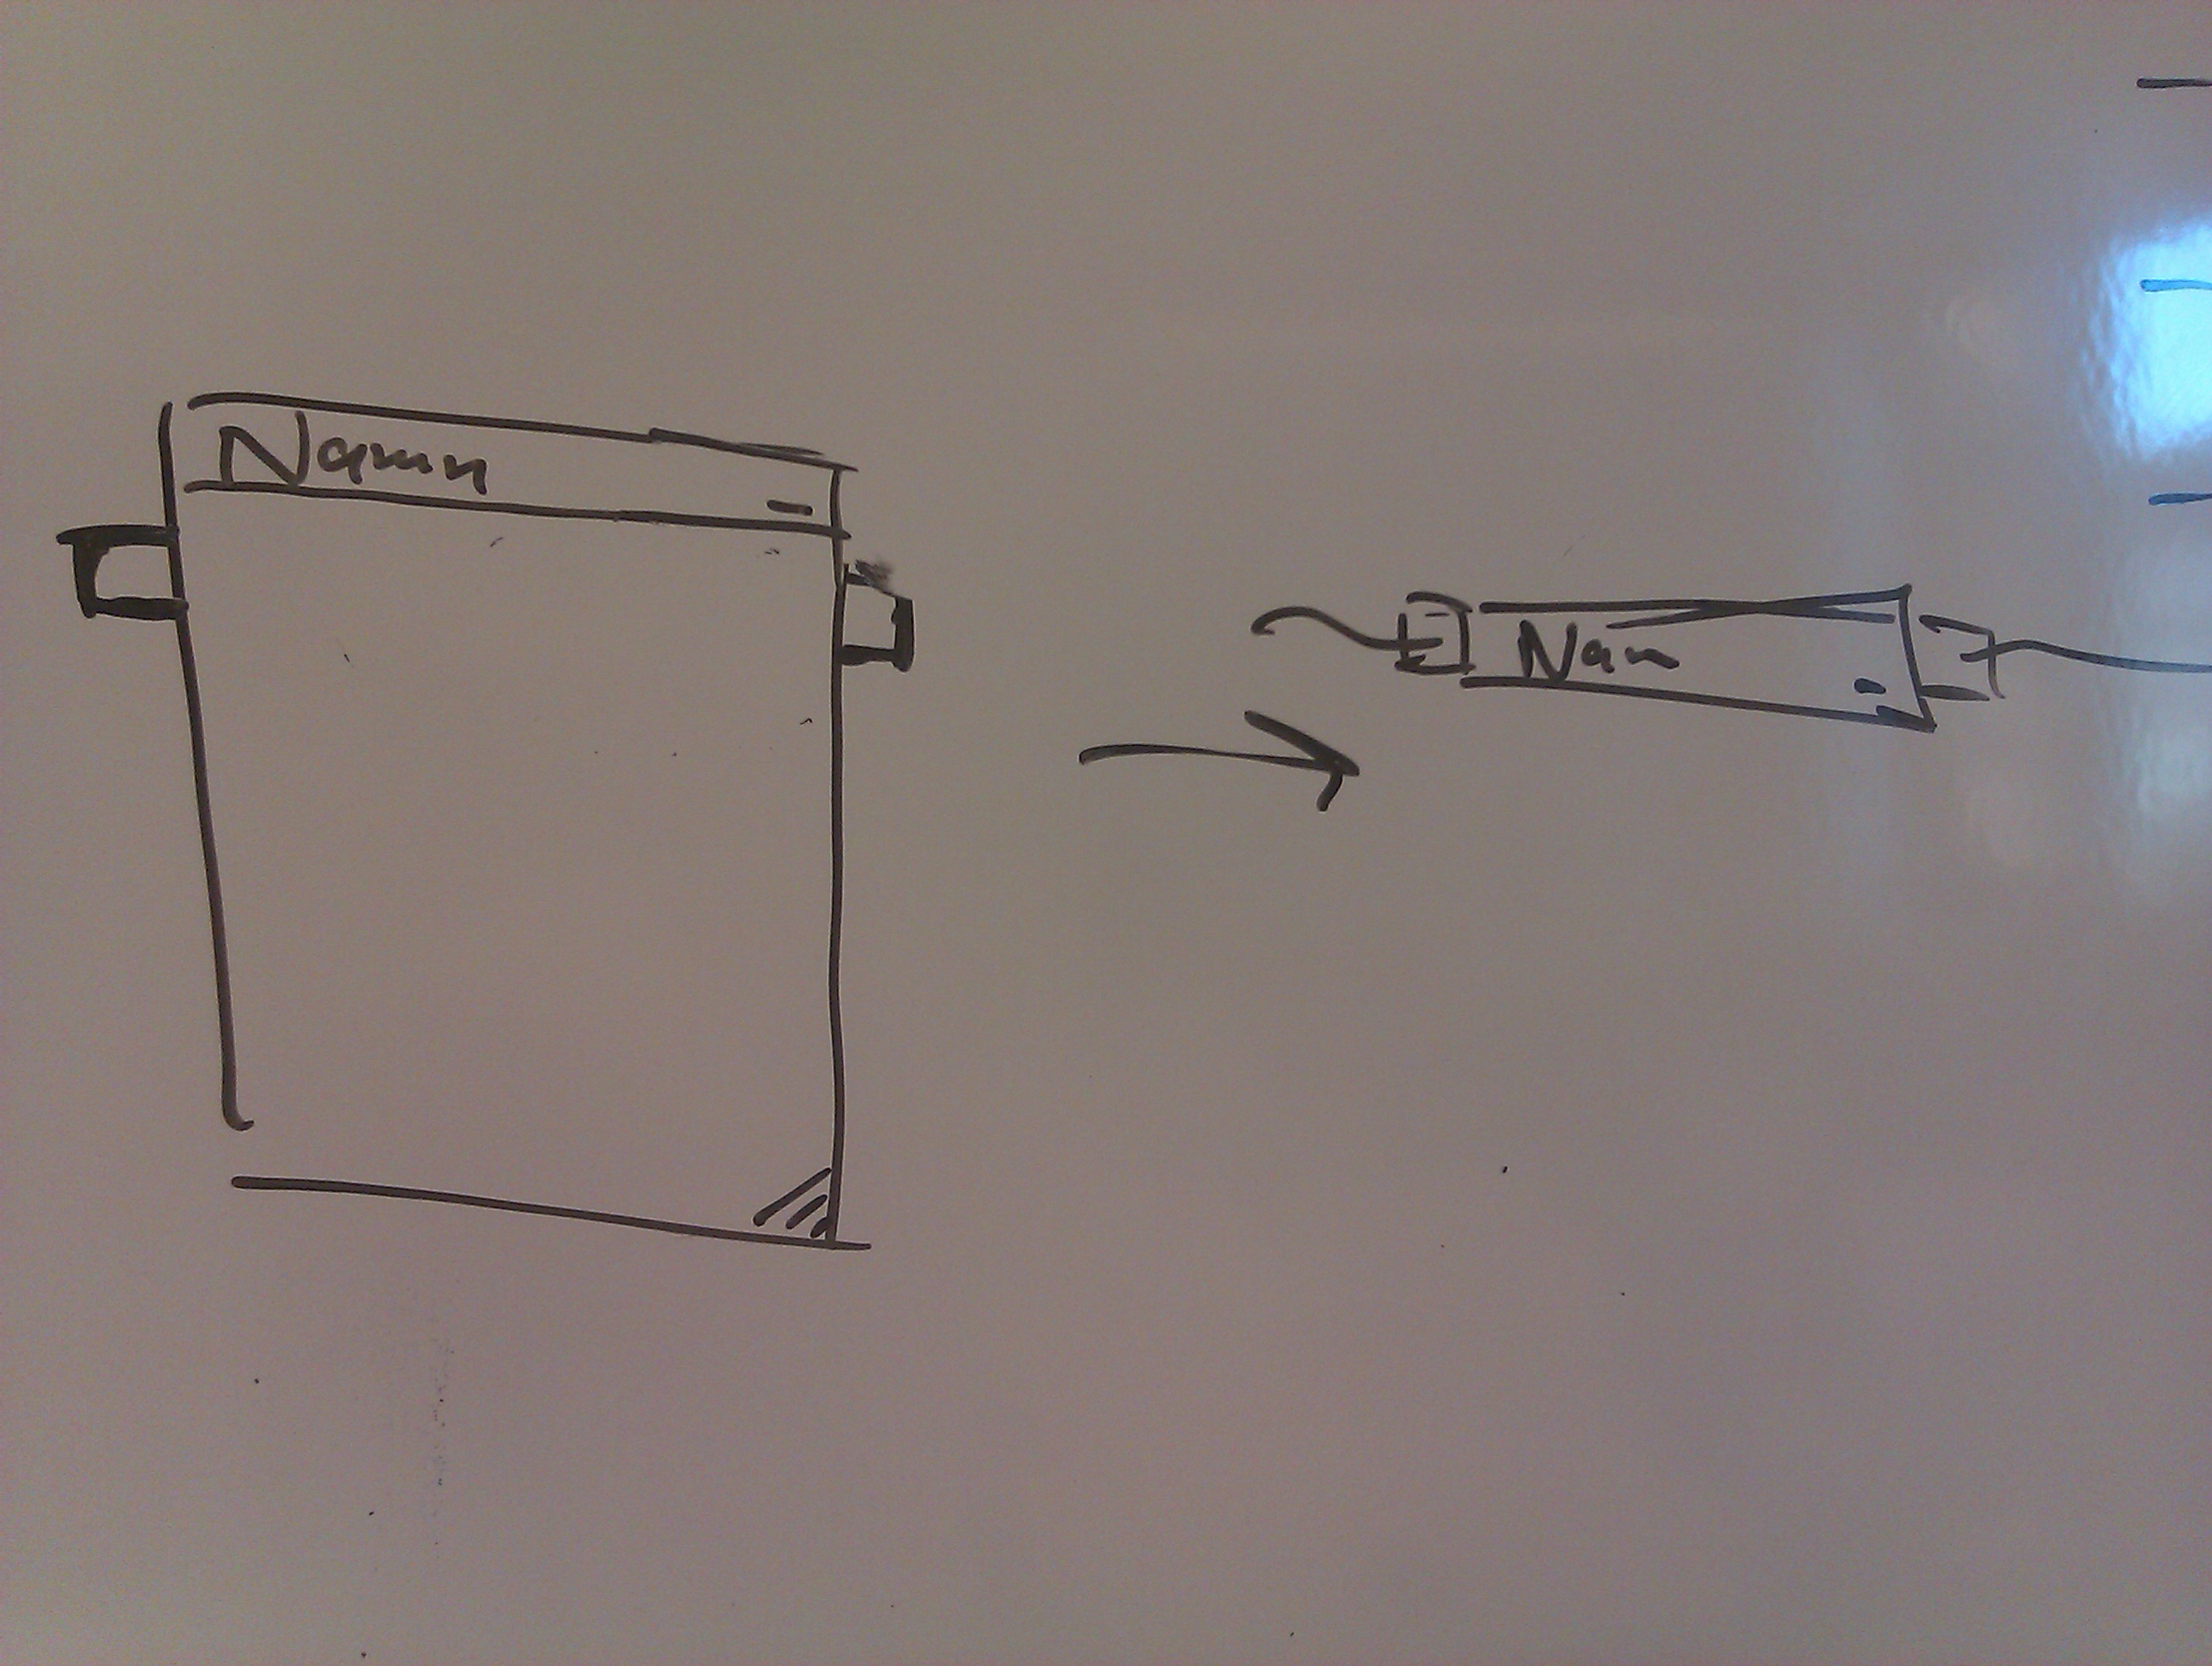 Namn
Nam